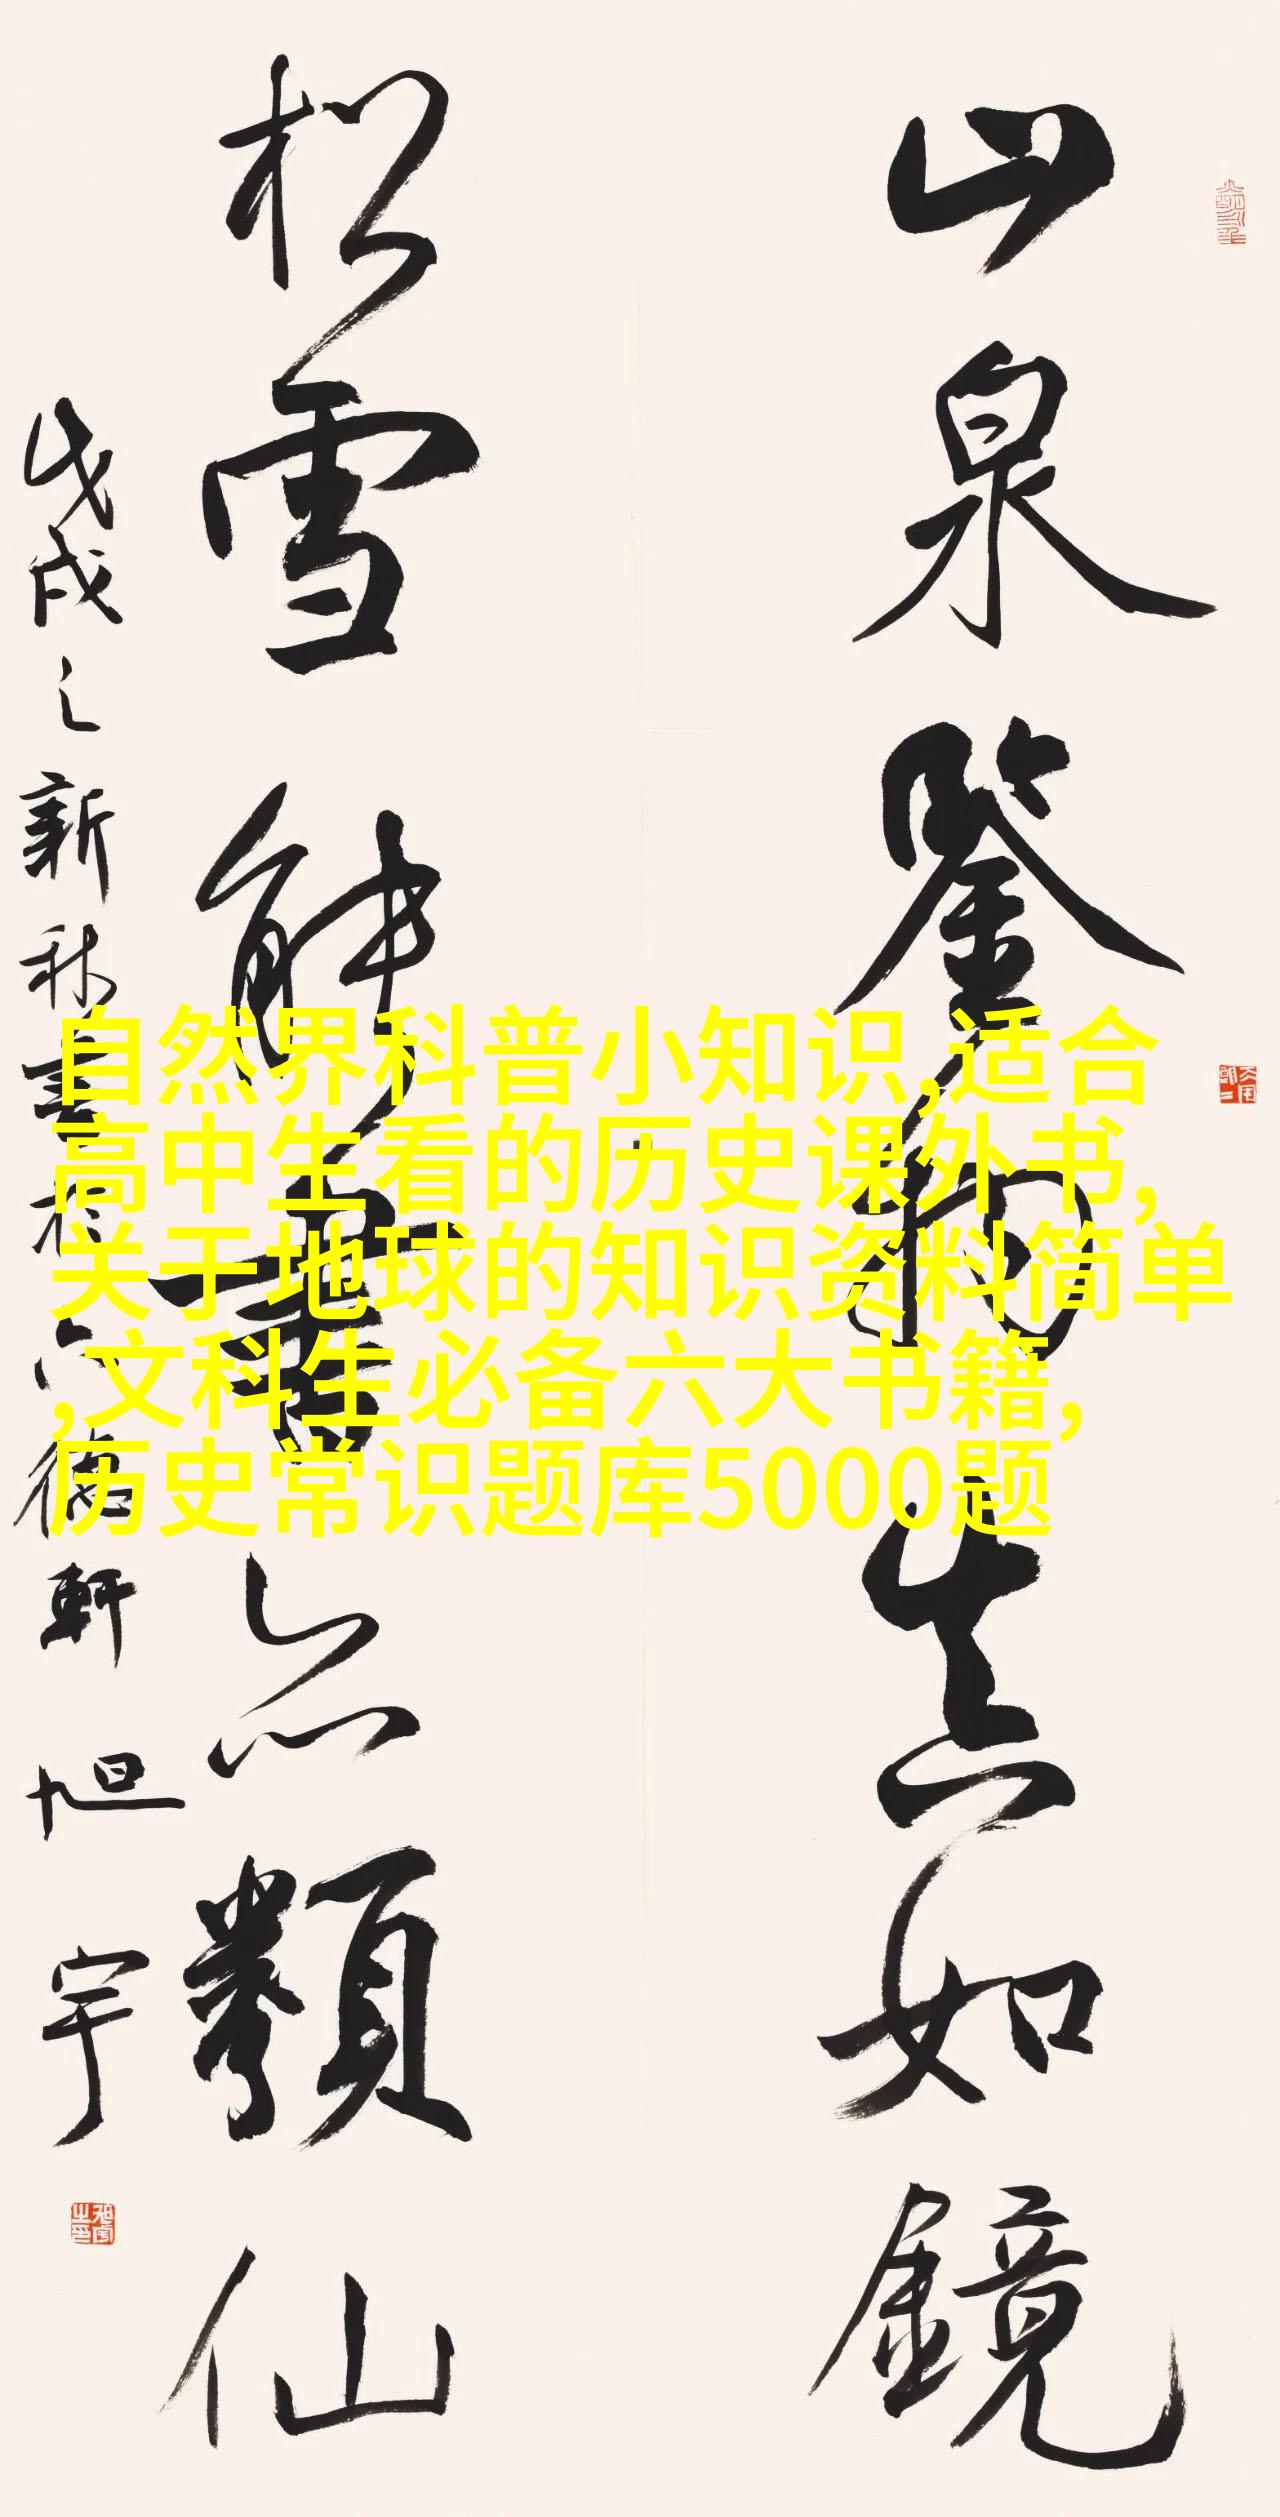 山泉鑒物真如鏡
松雪解書点類仙
戊戌之新秋
軒旭宇
自然界科普小知识,适合
高中生看的历史课外书,
关于地球的知识资料简单
,文科生必备六大书籍,
历史常识题库5000题